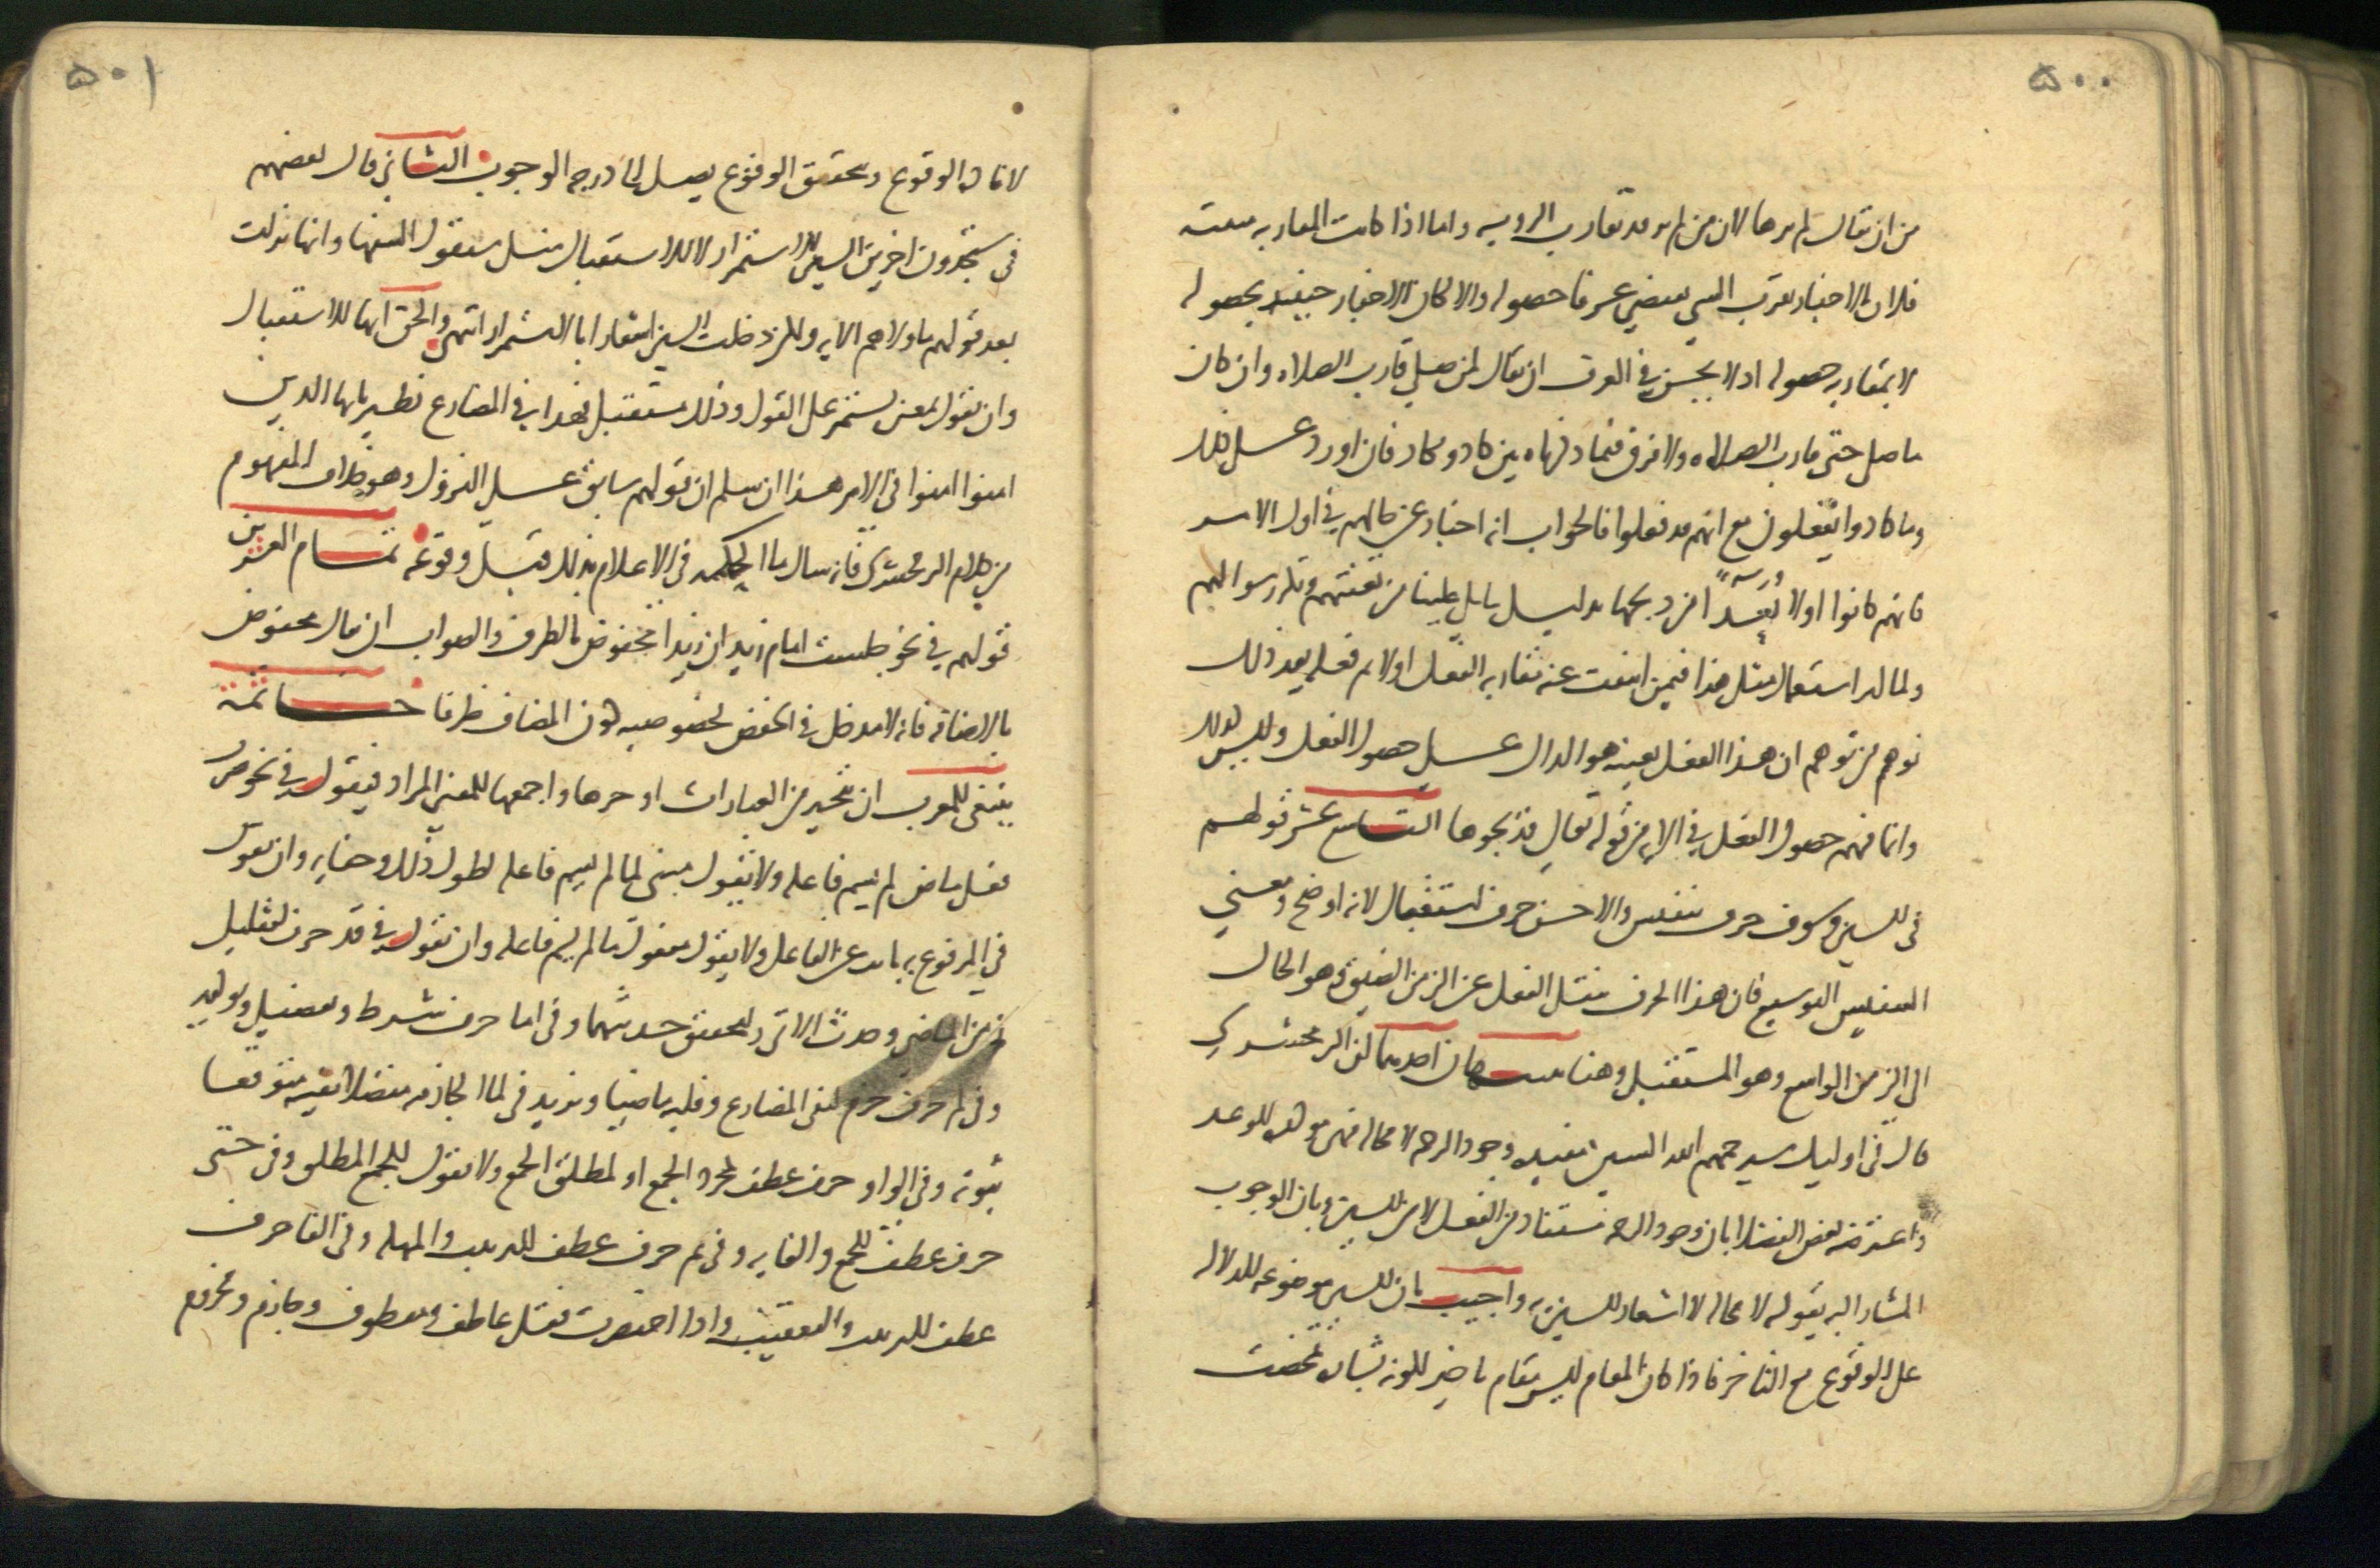 ۵۰۰
من ان يقال لم يرها لان من لم ير قد يقارب الرويه واما اذا كانت المقاربه مثبته
فلان الاخبار بقرب الشي يقتضي عرفا عدم حصوله والا لكان الاخبار حينئذ بحصوله
لا بمقاربه حصوله اذ لا يحسن في العرف ان يقال لمن صلي قارب الصلاه وان كان
ما صلي حتي قارب الصلاه ولا فرق فيما ذكرناه بين كاد ويكاد فان اورد علي ذلك
وما كادوا يفعلون مع انهم قد فعلوا فالجواب انه اخبار عن حالهم في اول الامر
فانهم كانوا اولا بعدا من ذبحها بدليل ما يتلي علينا من تعنتهم وتكرر سوالهم
ولما كثر استعمال مثل هذا فيمن انتفت عنه مقاربه الفعل اولا ثم فعله بعد ذلك
توهم من توهم ان هذا الفعل بعينه هو الدال علي حصول الفعل وليس كذلك
وانما فهم حصول الفعل في الايه من قوله تعالي فذبحوها التاسع عشر قولهم
في السين وسوف حرف تنفيس والاحسن حرف استقبال لانه اوضح ومعني
التنفيس التوسيع فان هذا الحرف ينقل الفعل عن الزمن الضيق وهو الحال
الي الزمن الواسع وهو المستقبل وهنا تنبيهان احدهما ان الزمخشري
قال في اوليك سيرحمهم الله السين مفيده وجود الرحمه لا محاله فهي موكده للوعد
واعترضه بعض الفضلا بان وجود الرحمه مستفاد من الفعل لا من السين وبان الوجوب
المشار اليه بقوله لا محاله لا اشعار للسين به واجيب بان السين موضوعه للدلاله
علي الوقوع مع التاخر فاذا كان المقام ليس مقام تاخير لكونه بشاره تمحضت
۵۰۱
لافاده الوقوع وبتحقق الوقوع يصل الي درجه الوجوب الثاني قال بعضهم
في ستجدون اخرين السين للاستمرار لا للاستقبال مثل سيقول السفها وانها نزلت
بعد قولهم ما ولاهم الايه ولكن دخلت السين اشعارا بالاستمرار انتهي والحق انها للاستقبال
وان يقول بمعني يستمر علي القول وذلك مستقبل فهذا في المضارع نظير يا ايها الذين
امنوا امنوا في الامر هذا ان سلم ان قولهم سابق علي النزول وهو خلاف المفهوم
من كلام الزمخشري فانه سال ما الحكمه في الاعلام بذلك قبل وقوعه تمام العشرين
قولهم في نحو جلست امام زيد ان زيدا مخفوض بالظرف والصواب ان يقال مخفوض
بالاضافه فانه لا مدخل في الخفض لخصوصيه كون المضاف ظرفا خاتمه
ينبغي للمعرب ان يتخير من العبارات اوجزها واجمعها للمعني المراد فيقول في نحو ضرب
فعل ماض لم يسم فاعله ولا يقول مبني لما لم يسم فاعله لطول ذلك وخفايه وان يقول
في المرفوع به نايب عن الفاعل ولا يقول مفعول ما لم يسم فاعله وان يقول في قد حرف لتقليل
زمن الماضي وحدث الاتي ولتحقيق حدثيهما وفي اما حرف شرط وتفصيل وتوكيد
وفي لم حرف جزم لنفي المضارع وقلبه ماضيا ويزيد في لما الجازمه متصلا نفيه متوقعا
ثبوته وفي الواو حرف عطف لمجرد الجمع او لمطلق الجمع ولا يقول للجمع المطلق وفي حتي
حرف عطف للجمع والغايه وفي ثم حرف عطف للترتيب والمهله وفي الفا حرف
عطف للترتيب والتعقيب واذا اختصرت فقل عاطف ومعطوف وجازم ومجزوم